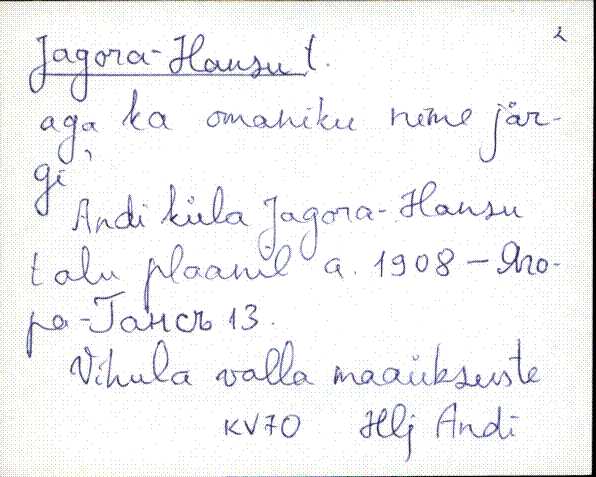 2
Jagora-Hansu t.
aga ka omaniku nime jär-
gi
Andi küla Jagora-Hansu
talu plaanil a. 1908 – Яго-
ра-Гансъ 13.
Vihula valla maaüksuste
KV70 Hlj Andi